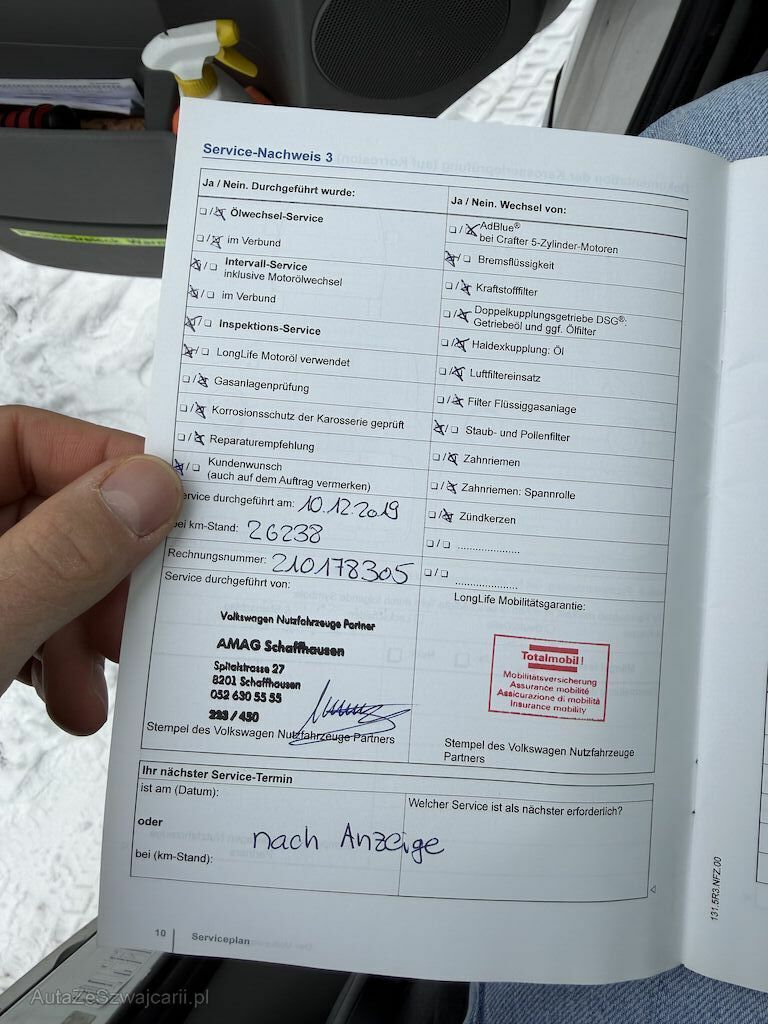 Service-Nachweis 3
Ja / Nein. Durchgeführt wurde:
Ölwechsel-Service
im Verbund
Intervall-Service
inklusive Motorölwechsel
im Verbund
Inspektions-Service
LongLife Motoröl verwendet
Gasanlagenprüfung
Korrosionsschutz der Karosserie geprüft
Reparaturempfehlung
Kundenwunsch
(auch auf dem Auftrag vermerken)
ervice durchgeführt am: 10.12.2019
bei km-Stand: 26238
Rechnungsnummer: 210178305
Service durchgeführt von:
Volkswagen Nutzfahrzeuge Partner
AMAG Schaffhausen
Spitalstrasse 27
8201 Schaffhausen
052 630 55 55
223 / 450
Stempel des Volkswagen Nutzfahrzeuge Partners
Ja / Nein. Wechsel von:
AdBlue®
bei Crafter 5-Zylinder-Motoren
Bremsflüssigkeit
Kraftstofffilter
Doppelkupplungsgetriebe DSG®:
Getriebeöl und ggf. Ölfilter
Haldexkupplung: Öl
Luftfiltereinsatz
Filter Flüssiggasanlage
Staub- und Pollenfilter
Zahnriemen
Zahnriemen: Spannrolle
Zündkerzen
LongLife Mobilitätsgarantie:
Totalmobil!
Mobilitätsversicherung
Assurance mobilité
Assicurazione di mobilità
Insurance mobility
Stempel des Volkswagen Nutzfahrzeuge
Partners
Ihr nächster Service-Termin
ist am (Datum):
oder
bei (km-Stand):
nach Anzeige
Welcher Service ist als nächster erforderlich?
131.5R3.NFZ.00
10
Serviceplan
AutaZeSzwajcarii.pl